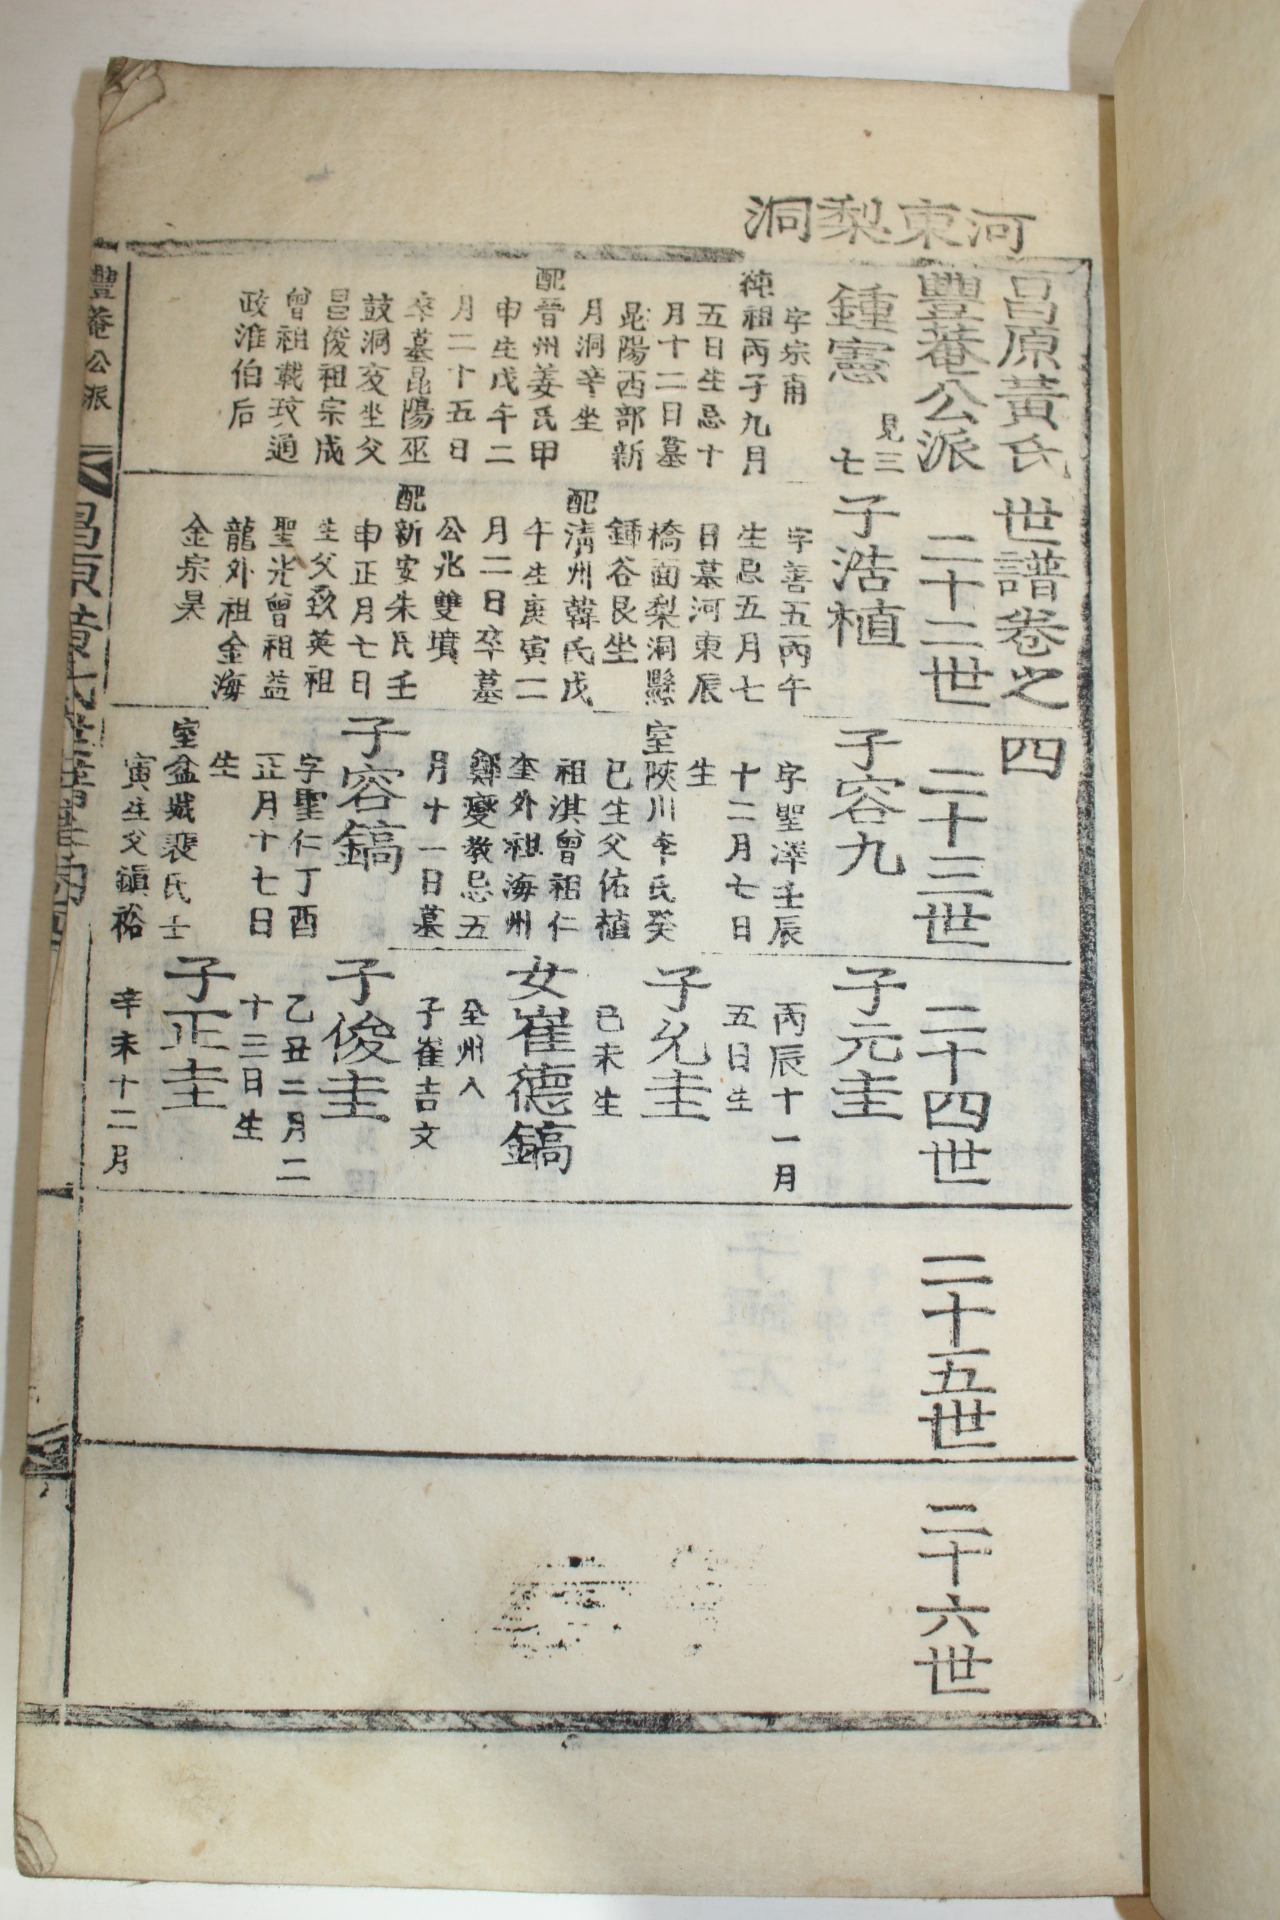 河東梨洞
昌原黃氏世譜卷之四
豐菴公派
二十二世
二十三世
二十四世
二十五世
二十六世
鍾憲
見三
七
字宗甫
純祖丙子九月
五日生忌十
月十二日墓
昆陽西部新
月洞辛坐
配晉州姜氏甲
申生戊午二
月二十五日
卒墓昆陽巫
鼓洞亥坐父
昌俊祖宗成
曾祖載玟通
政淮伯后
子浩植
字善五丙午
生忌五月七
日墓河東辰
橋面梨洞縣
鍾谷艮坐
配淸州韓氏戊
午生庚寅二
月二日卒墓
公兆雙墳
配新安朱氏壬
申正月七日
生父致英祖
聖光曾祖益
龍外祖金海
金宗昊
子容九
字聖澤壬辰
十二月七日
生
室陜川李氏癸
巳生父佑植
祖淇曾祖仁
奎外祖海州
鄭夔敎忌五
月十一日墓
子容鎬
字聖仁丁酉
正月十七日
生
室盆城裵氏士
寅生父鎭裕
子元圭
丙辰十一月
五日生
子允圭
己未生
女崔德鎬
全州人
子崔吉文
子俊圭
乙丑二月二
十三日生
子正圭
辛未十二月
豐菴公派
昌原黃氏世譜卷之四